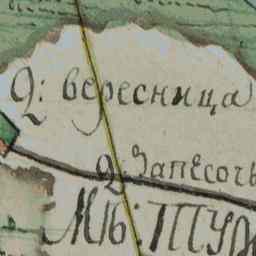 Д: вересница
Д: Запесочь
МѢ: ТУР